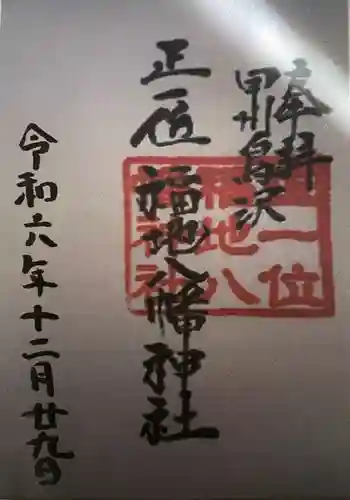 奉拝
甲州鳥沢
正一位
福地八幡神社
令和六年十二月廿九日
正一位
福地八
幡神社